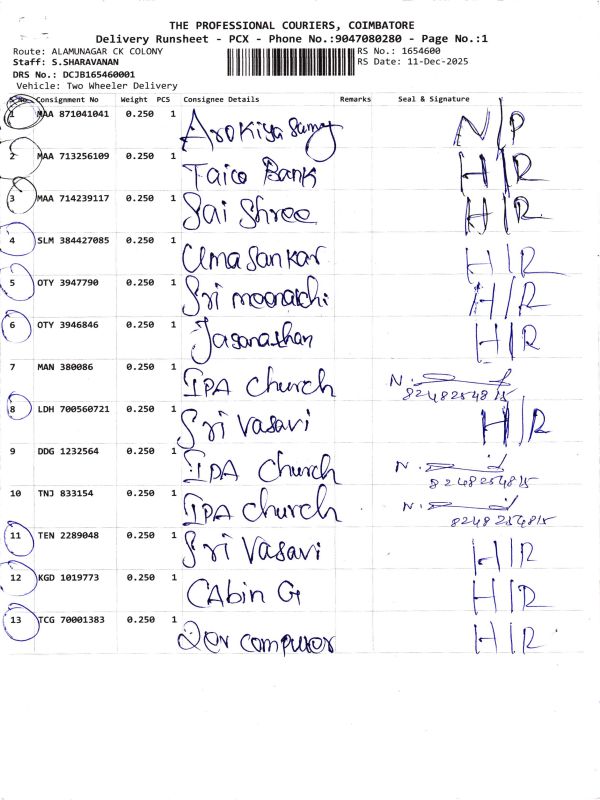 THE PROFESSIONAL COURIERS, COIMBATORE
Delivery Runsheet - PCX - Phone No.:9047080280 - Page No.:1
Route: ALAMUNAGAR CK COLONY RS No.: 1654600
Staff: S.SHARAVANAN RS Date: 11-Dec-2025
DRS No.: DCJB165460001
Vehicle: Two Wheeler Delivery
S.No Consignment No Weight PCS Consignee Details Remarks Seal & Signature
1 MAA 871041041 0.250 1 Arokiya Samy N/P
2 MAA 713256109 0.250 1 Taico Bank H/R
3 MAA 714239117 0.250 1 Sai Shree H/R
4 SLM 384427085 0.250 1 Uma Sankar H/R
5 OTY 3947790 0.250 1 Sri moonatchi H/R
6 OTY 3946846 0.250 1 Jasanathan H/R
7 MAN 380086 0.250 1 IPA church N.
8248254815
8 LDH 700560721 0.250 1 Sri Vasavi H/R
9 DDG 1232564 0.250 1 IPA Church N.
8248254815
10 TNJ 833154 0.250 1 IPA church N.
8248254815
11 TEN 2289048 0.250 1 Sri Vasavi H/R
12 KGD 1019773 0.250 1 CAbin G H/R
13 TCG 70001383 0.250 1 computer H/R